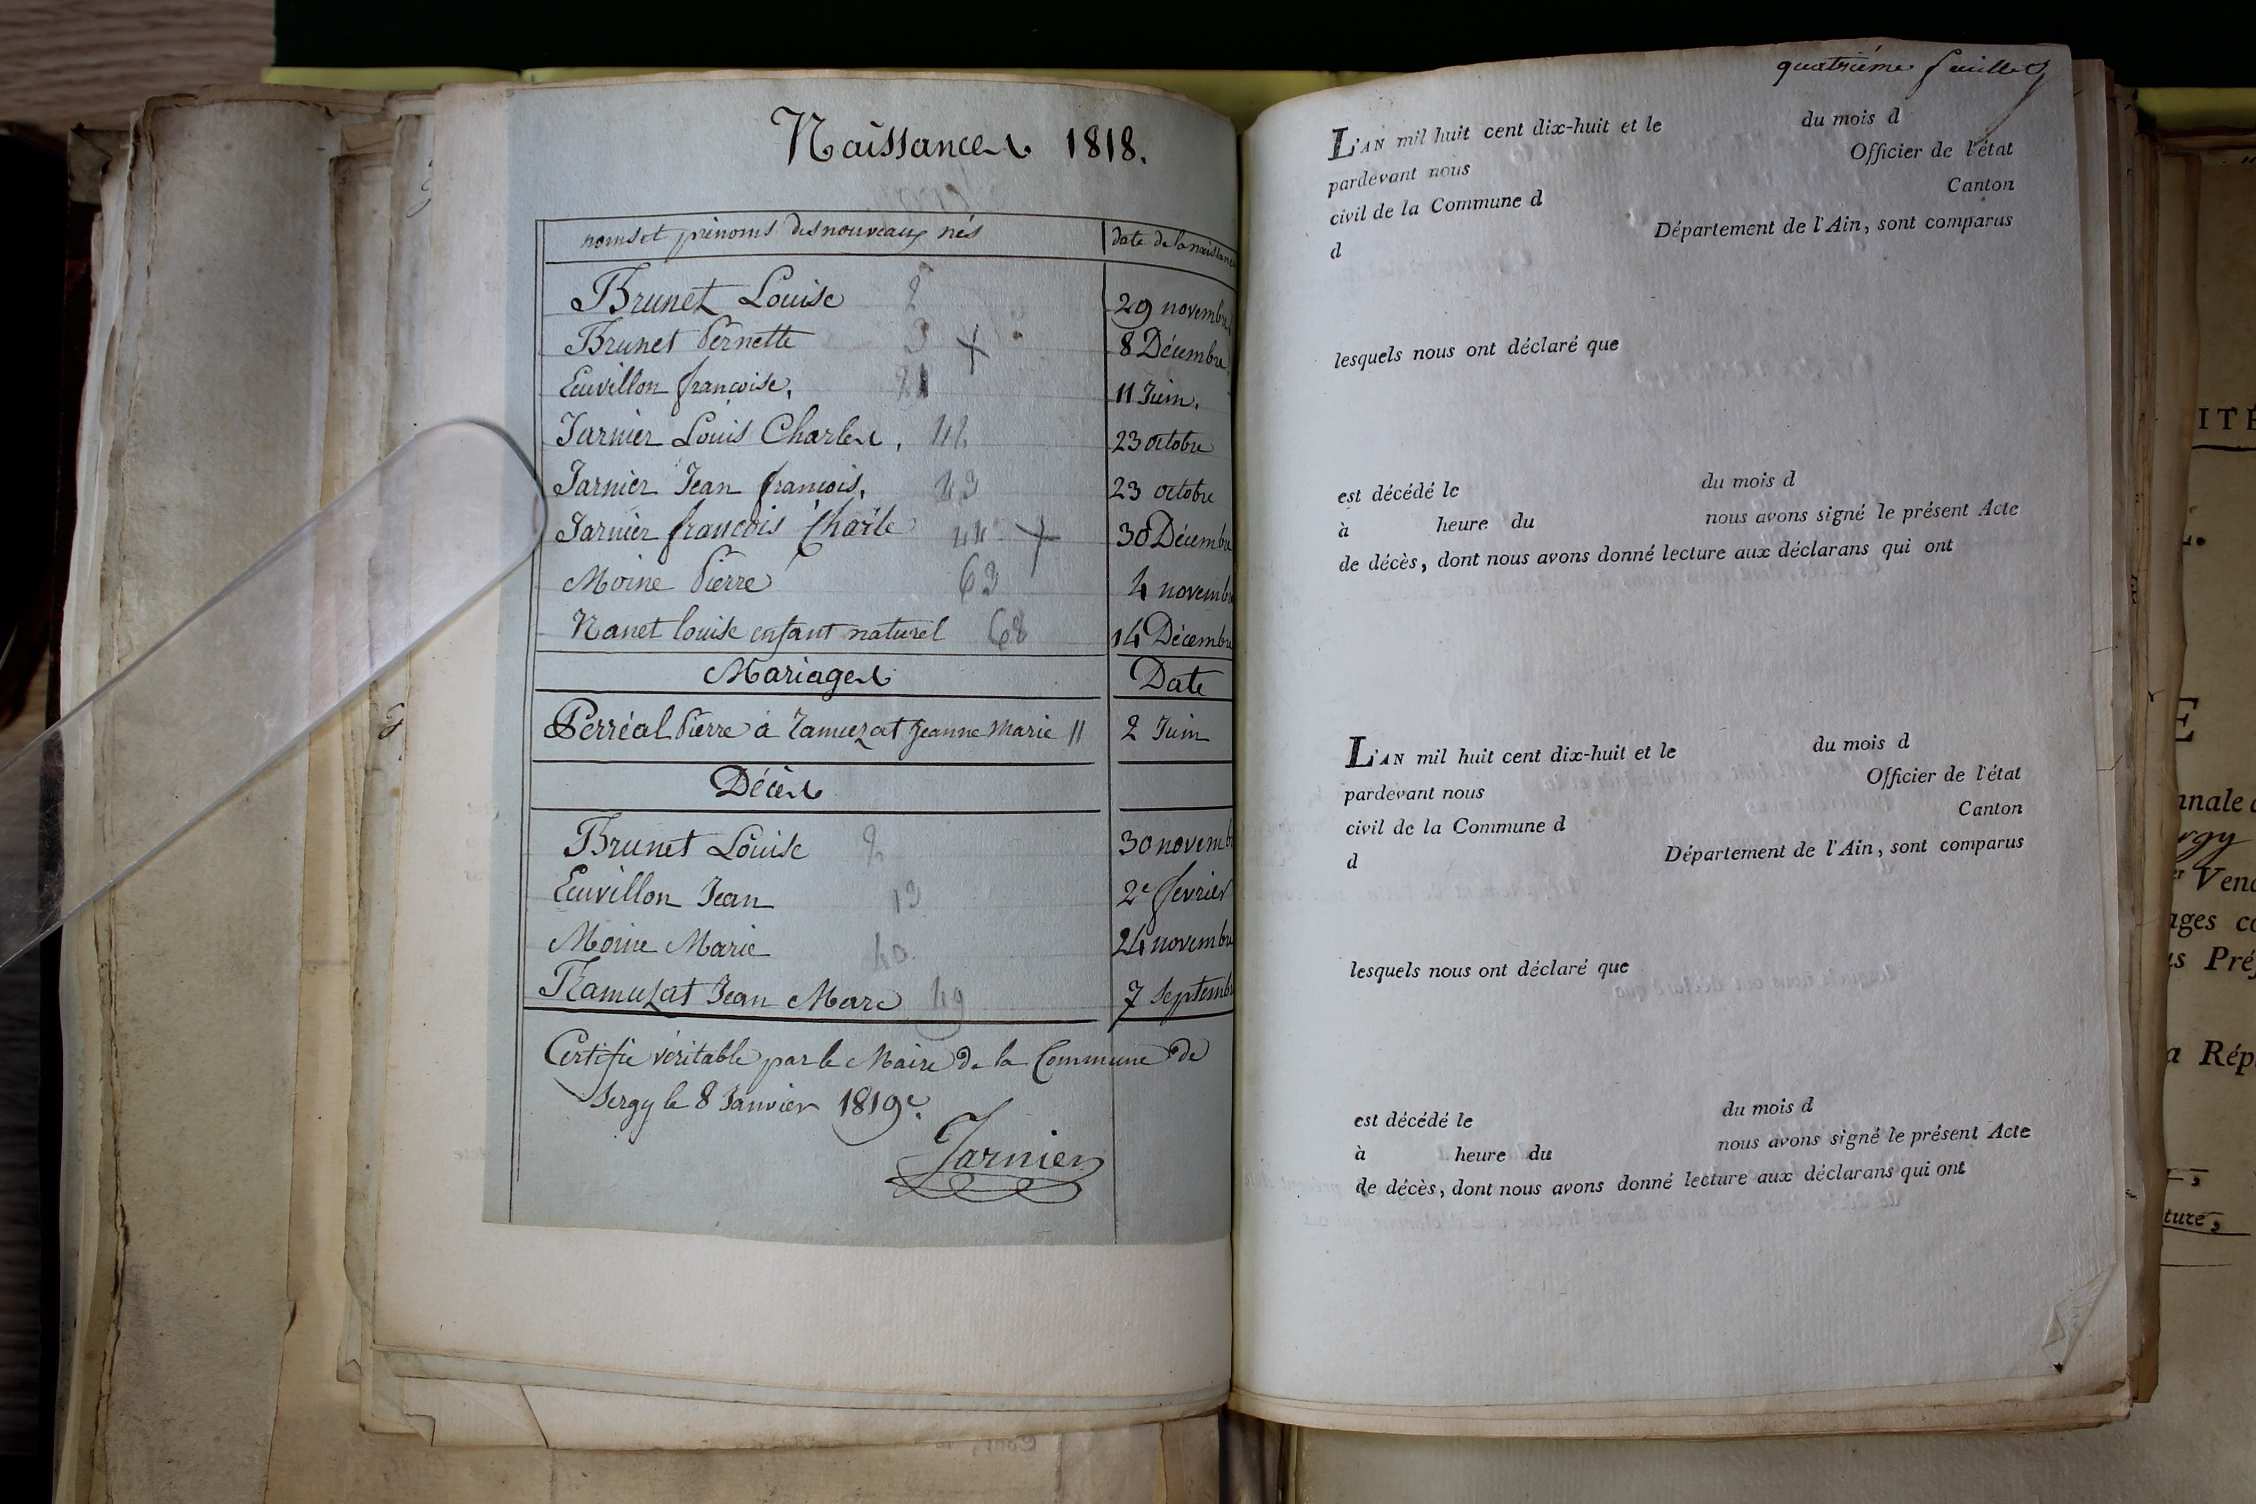 Naissances 1818.
noms et prénoms des nouveaux nés | date de la naissance
Brunet Louise 2 | 29 novembre
Brunet Pernette 3 + | 8 Décembre
Ecuvillon françoise. 21 | 11 Juin.
Jarnier Louis Charles, 42 | 23 octobre
Jarnier Jean françois, 43 | 23 octobre
Jarnier françois Charle 44 + | 30 Décembre
Moine Pierre 63 | 4 novembre
Nanet louise enfant naturel 68 | 14 Décembre
Mariages | Date
Perréal Pierre à Ramuzat Jeanne Marie 11 | 2 Juin
Décès
Brunet Louise 2 | 30 novemb
Ecuvillon Jean 13 | 2e fevrier
Moine Marie 40 | 24 novembre
Ramuzat Jean Marc 49 | 7 septemb
Certifié véritable par le Maire de la Commune de
Sergy le 8 Janvier 1819e.
Jarnier
quatrième feuillet
L'AN mil huit cent dix-huit et le du mois d
pardevant nous Officier de l'état
civil de la Commune d Canton
d Département de l'Ain, sont comparus
lesquels nous ont déclaré que
est décédé le du mois d
à heure du nous avons signé le présent Acte
de décès, dont nous avons donné lecture aux déclarans qui ont
L'AN mil huit cent dix-huit et le du mois d
pardevant nous Officier de l'état
civil de la Commune d Canton
d Département de l'Ain, sont comparus
lesquels nous ont déclaré que
est décédé le du mois d
à heure du nous avons signé le présent Acte
de décès, dont nous avons donné lecture aux déclarans qui ont
ITÉ
E
nnale
rgy
Vend
ages co
s Pré
a Rép
ture,